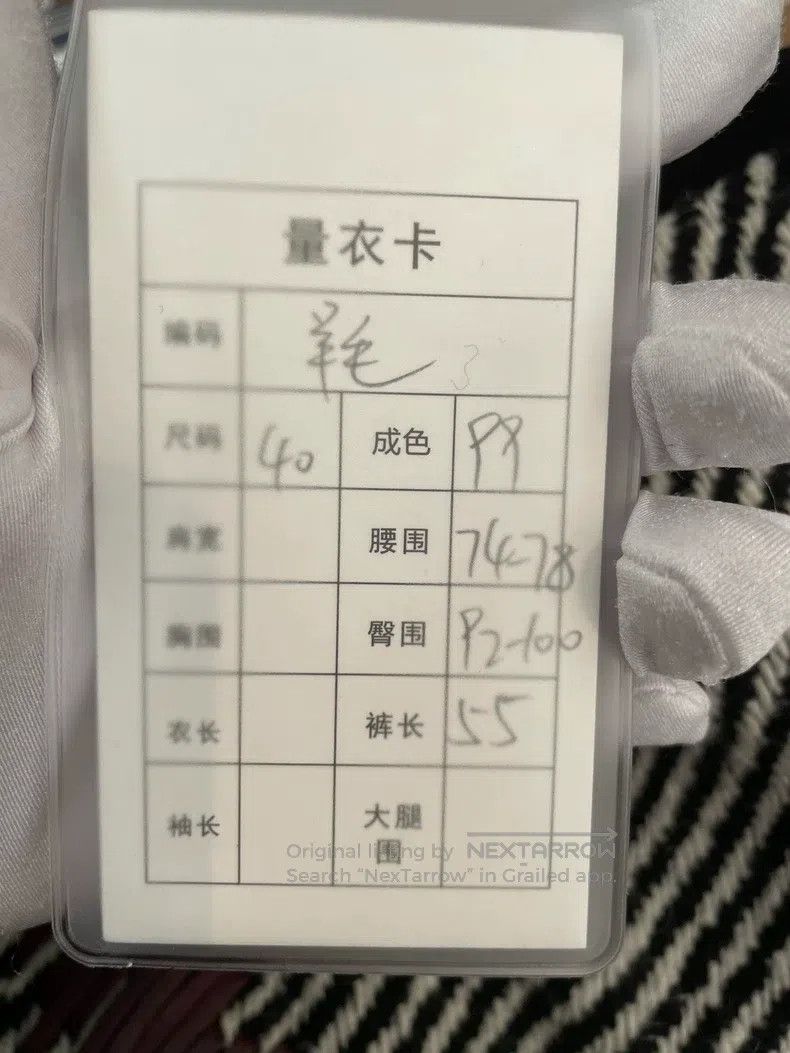 量衣卡
编码 羊毛
尺码 40 成色 99
肩宽 腰围 74-78
胸围 臀围 92-100
衣长 裤长 55
袖长 大腿围
Original listing by NEXTARROW
Search "NexTarrow" in Grailed app.